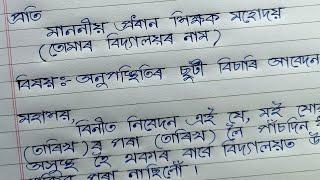 প্ৰতি
মাননীয় প্ৰধান শিক্ষক মহোদয়
(তোমাৰ বিদ্যালয়ৰ নাম)
বিষয়ঃ অনুপস্থিতিৰ ছুটী বিচাৰি আবেদন
মহাশয়,
বিনীত নিবেদন এই যে, মই যোৱা
(তাৰিখ) ৰ পৰা (তাৰিখ) লৈ পাঁচদিন
অসুস্থ হৈ থকাৰ বাবে বিদ্যালয়ত
পৰা নাছিলোঁ।